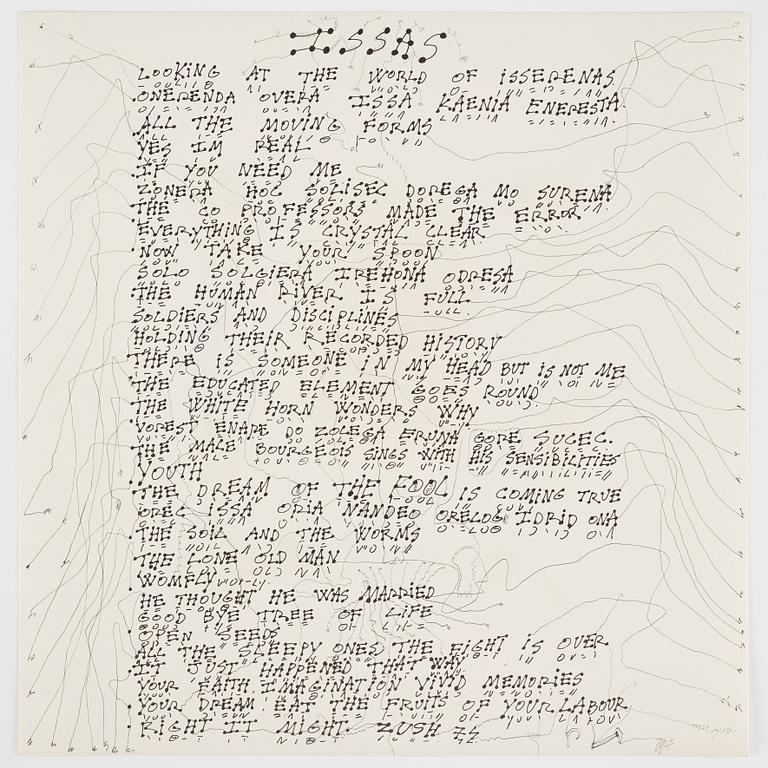 ISSAS
LOOKING AT THE WORLD OF ISSERENAS
ONERENDA OVERA ISSA KAENIA ENERESTA
ALL THE MOVING FORMS
YES IM REAL
IF YOU NEED ME
ZONERA HOC SOLISEC DOREGA MO SURENA
THE CO PROFESSORS MADE THE ERROR
EVERYTHING IS CRYSTAL CLEAR
NOW TAKE YOUR SPOON
SOLO SOLGIERA IREHONA ODRESA
THE HUMAN RIVER IS FULL
SOLDIERS AND DISCIPLINES
HOLDING THEIR RECORDED HISTORY
THERE IS SOMEONE IN MY HEAD BUT IS NOT ME
THE EDUCATED ELEMENT GOES ROUND
THE WHITE HORN WONDERS WHY
VOREST ENARE DO ZOLEGA ERUNA GORE SUCEC.
THE MALE BOURGEOIS SINGS WITH HIS SENSIBILITIES
YOUTH
THE DREAM OF THE FOOL IS COMING TRUE
OREC ISSA ORIA NANDEO ORELOG IDRID ONA
THE SOIL AND THE WORMS
THE LONE OLD MAN
WOMFLY
HE THOUGHT HE WAS MARRIED
GOOD BYE TREE OF LIFE
OPEN SEEDS
ALL THE SLEEPY ONES THE EIGHT IS OVER
IT JUST HAPPENED THAT WAY
YOUR FAITH IMAGINATION VIVID MEMORIES
YOUR DREAM EAT THE FRUITS OF YOUR LABOUR
RIGHT IT MIGHT. ZUSH 74